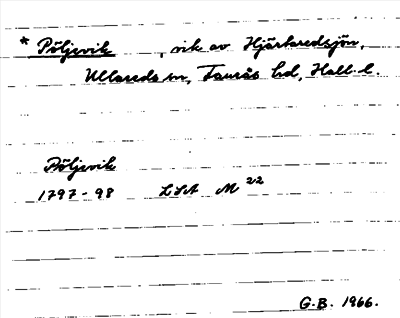 * Påljevik, vik av Hjärtaredsjön,
Ullareds sn, Faurås hd, Hall. l.
Påljevik
1797-98 LSA M 22
G.B. 1966.